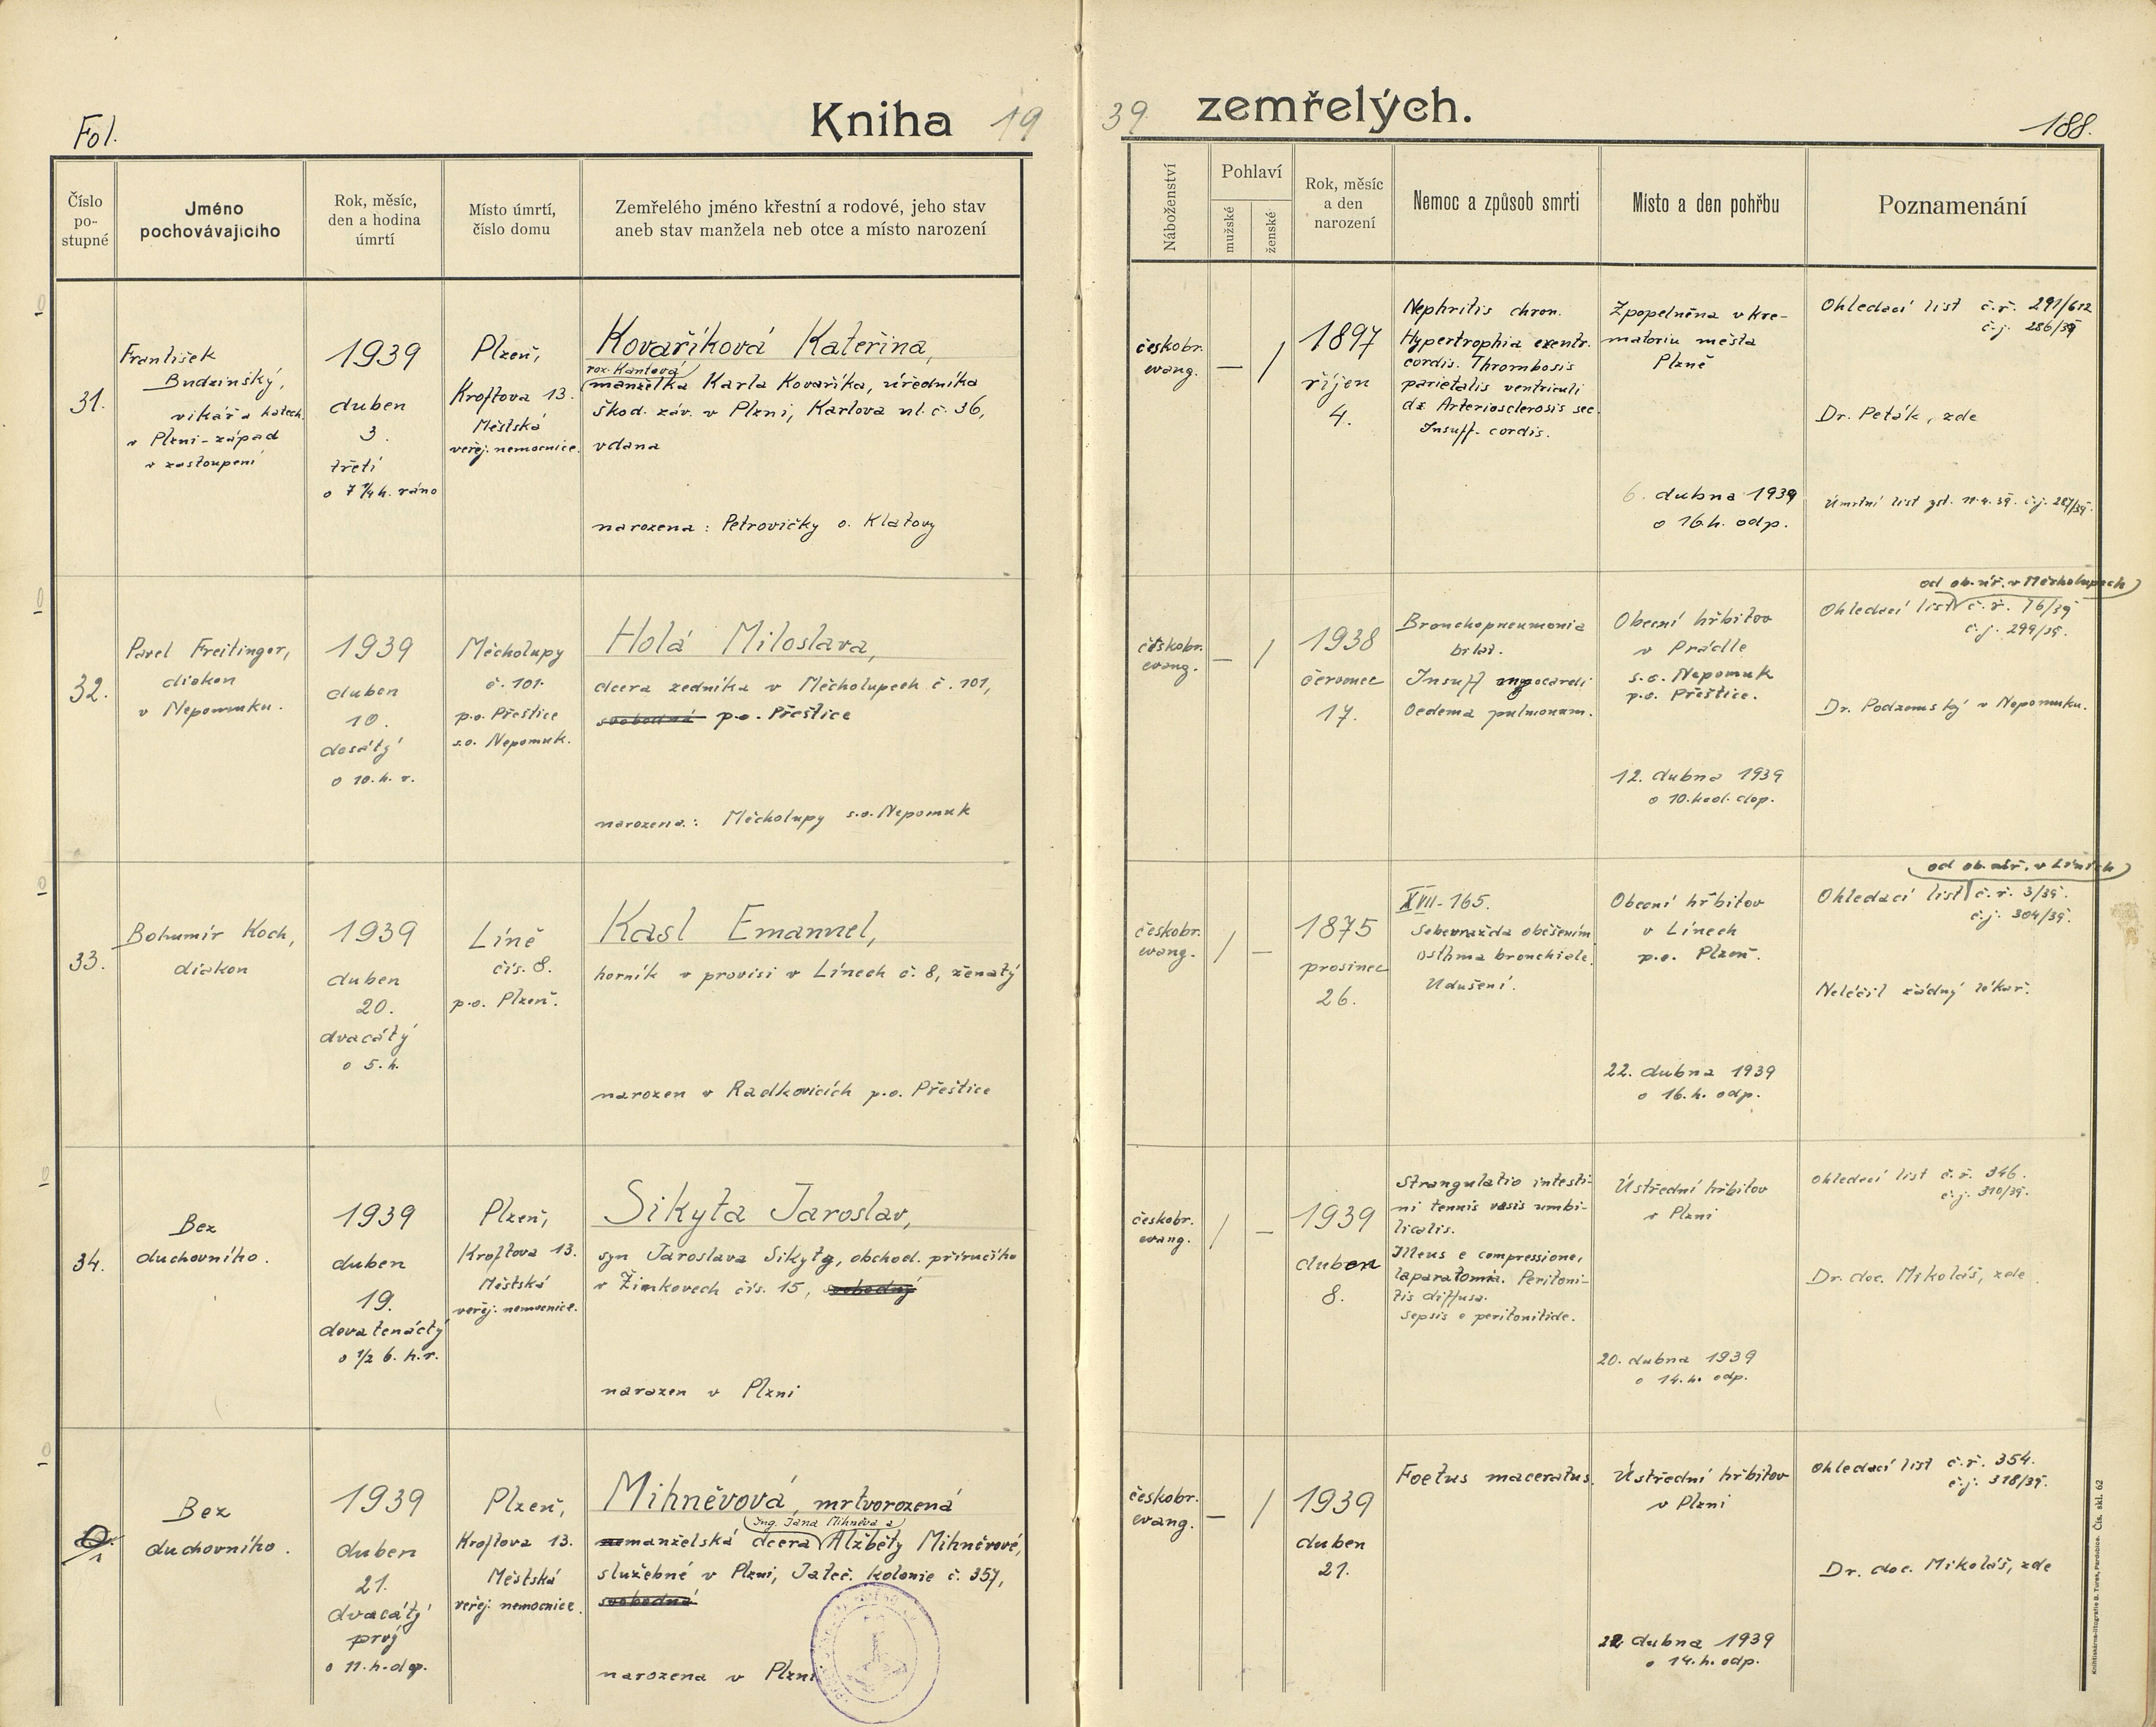 Fol.
Kniha 19
39 zemřelých.
188.
Číslo
po-
stupné
Jméno
pochovávajícího
Rok, měsíc,
den a hodina
úmrtí
Místo úmrtí,
číslo domu
Zemřelého jméno křestní a rodové, jeho stav
aneb stav manžela neb otce a místo narození
Náboženství
Pohlaví
mužské
ženské
Rok, měsíc
a den
narození
Nemoc a způsob smrti
Místo a den pohřbu
Poznamenání
31.
František
Budzinský,
vikář a katech.
v Plzni-západ
v zastoupení
1939
duben
3.
třetí
o 7 1/4 h. ráno
Plzeň,
Kroftova 13.
Městská
veřej. nemocnice.
Kovaříková Kateřina,
roz. Kantová
manželka Karla Kovaříka, úředníka
škod. záv. v Plzni, Karlova ul. č. 36,
vdana
narozena: Petrovičky o. Klatovy
českobr.
evang.
—
/
1897
říjen
4.
Nephritis chron.
Hypertrophia exentr.
cordis. Thrombosis
parietalis ventriculi
dx Arteriosclerosis sec.
Insuff. cordis.
Zpopelněna v kre-
matoriu města
Plzně
6. dubna 1939
o 16.h. odp.
Ohledací list č.ř. 291/612
č.j. 286/39
Dr. Peták, zde
Úmrtní list zd. 11.4.39. č.j. 287/39.
32.
Pavel Freitinger,
diakon
v Nepomuku.
1939
duben
10.
desátý
o 10.h. r.
Měcholupy
č. 101.
p.o. Přeštice
s.o. Nepomuk.
Holá Miloslava,
dcera zedníka v Měcholupech č. 101,
svobodná p.o. Přeštice
narozena: Měcholupy s.o. Nepomuk
českobr.
evang.
—
/
1938
červenec
17.
Bronchopneumonia
bilat.
Insuff myocardi
Oedema pulmonum.
Obecní hřbitov
v Prádle
s.o. Nepomuk
p.o. Přeštice.
12. dubna 1939
o 10.hod. dop.
od ob. úř. v Měcholupech
Ohledací list č.ř. 16/39
č.j. 299/39.
Dr. Podzemský v Nepomuku.
33.
Bohumír Koch,
diakon
1939
duben
20.
dvacátý
o 5. h.
Líně
čís. 8.
p.o. Plzeň.
Kasl Emanuel,
horník v provisi v Línech č. 8, ženatý
narozen v Radkovicích p.o. Přeštice
českobr.
evang.
/
—
1875
prosinec
26.
XVII-165.
Sebevražda oběšením
Asthma bronchiale.
Udušení.
Obecní hřbitov
v Línech
p.o. Plzeň.
22. dubna 1939
o 16.h. odp.
od ob. úř. v Líních
Ohledací list č.ř. 3/39.
č.j. 304/39.
Neléčil žádný lékař.
34.
Bez
duchovního.
1939
duben
19.
devatenáctý
o 1/2 6. h. r.
Plzeň,
Kroftova 13.
Městská
veřej. nemocnice.
Sikyta Jaroslav,
syn Jaroslava Sikyty, obchod. příručího
v Žinkovech čís. 15, svobodný
narozen v Plzni
českobr.
evang.
/
—
1939
duben
8.
Strangulatio intesti-
ni tenuis vasis umbi-
licalis.
Illeus e compressione,
laparatomia. Peritoni-
tis diffusa.
Sepsis e peritonitide.
Ústřední hřbitov
v Plzni
20. dubna 1939
o 14.h. odp.
Ohledací list č.ř. 346.
č.j. 310/39.
Dr. doc. Mikoláš, zde.
Bez
duchovního.
1939
duben
21.
dvacátý
prvý
o 11.h. dop.
Plzeň,
Kroftova 13.
Městská
veřej. nemocnice.
Mihněvová, mrtvorozená
Ing. Jana Mihněva a
nemanželská dcera Alžběty Mihněvové,
služebné v Plzni, Jateč. kolonie č. 357,
svobodná
narozena v Plzni
českobr.
evang.
—
/
1939
duben
21.
Foetus maceratus.
Ústřední hřbitov
v Plzni
22. dubna 1939
o 14.h. odp.
Ohledací list č.ř. 354.
č.j. 318/39.
Dr. doc. Mikoláš, zde
Knihtiskárna-litografie B. Turek, Pardubice. Čís. skl. 62